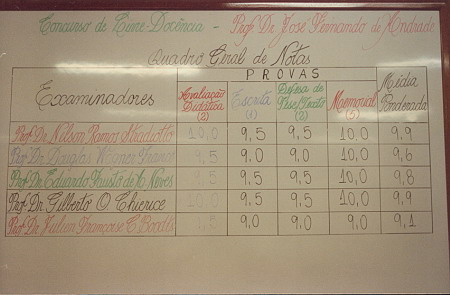 Concurso de Livre Docência - Prof. Dr. José Fernando de Andrade
Quadro Geral de Notas
Examinadores
PROVAS
Avaliação Didática (2)
Escrita (1)
Defesa de Tese/Texto (2)
Memorial (5)
Média Ponderada
Prof. Dr. Nelson Ramos 10,0 9,5 9,5 10,0 9,9
Prof. Dr. Douglas Wagner Franco 9,5 9.0 9,0 10,0 9,6
Prof. Dr. Eduardo Fausto de A. Neves 9,5 9,5 9,5 10,0 9,8
Prof. Dr. Gilberto O. Chierice 10,0 9,5 9,5 10,0 9,9
Prof. Dr. Julien Françoise C. 9,5 9,0 9,0 9,0 9,1